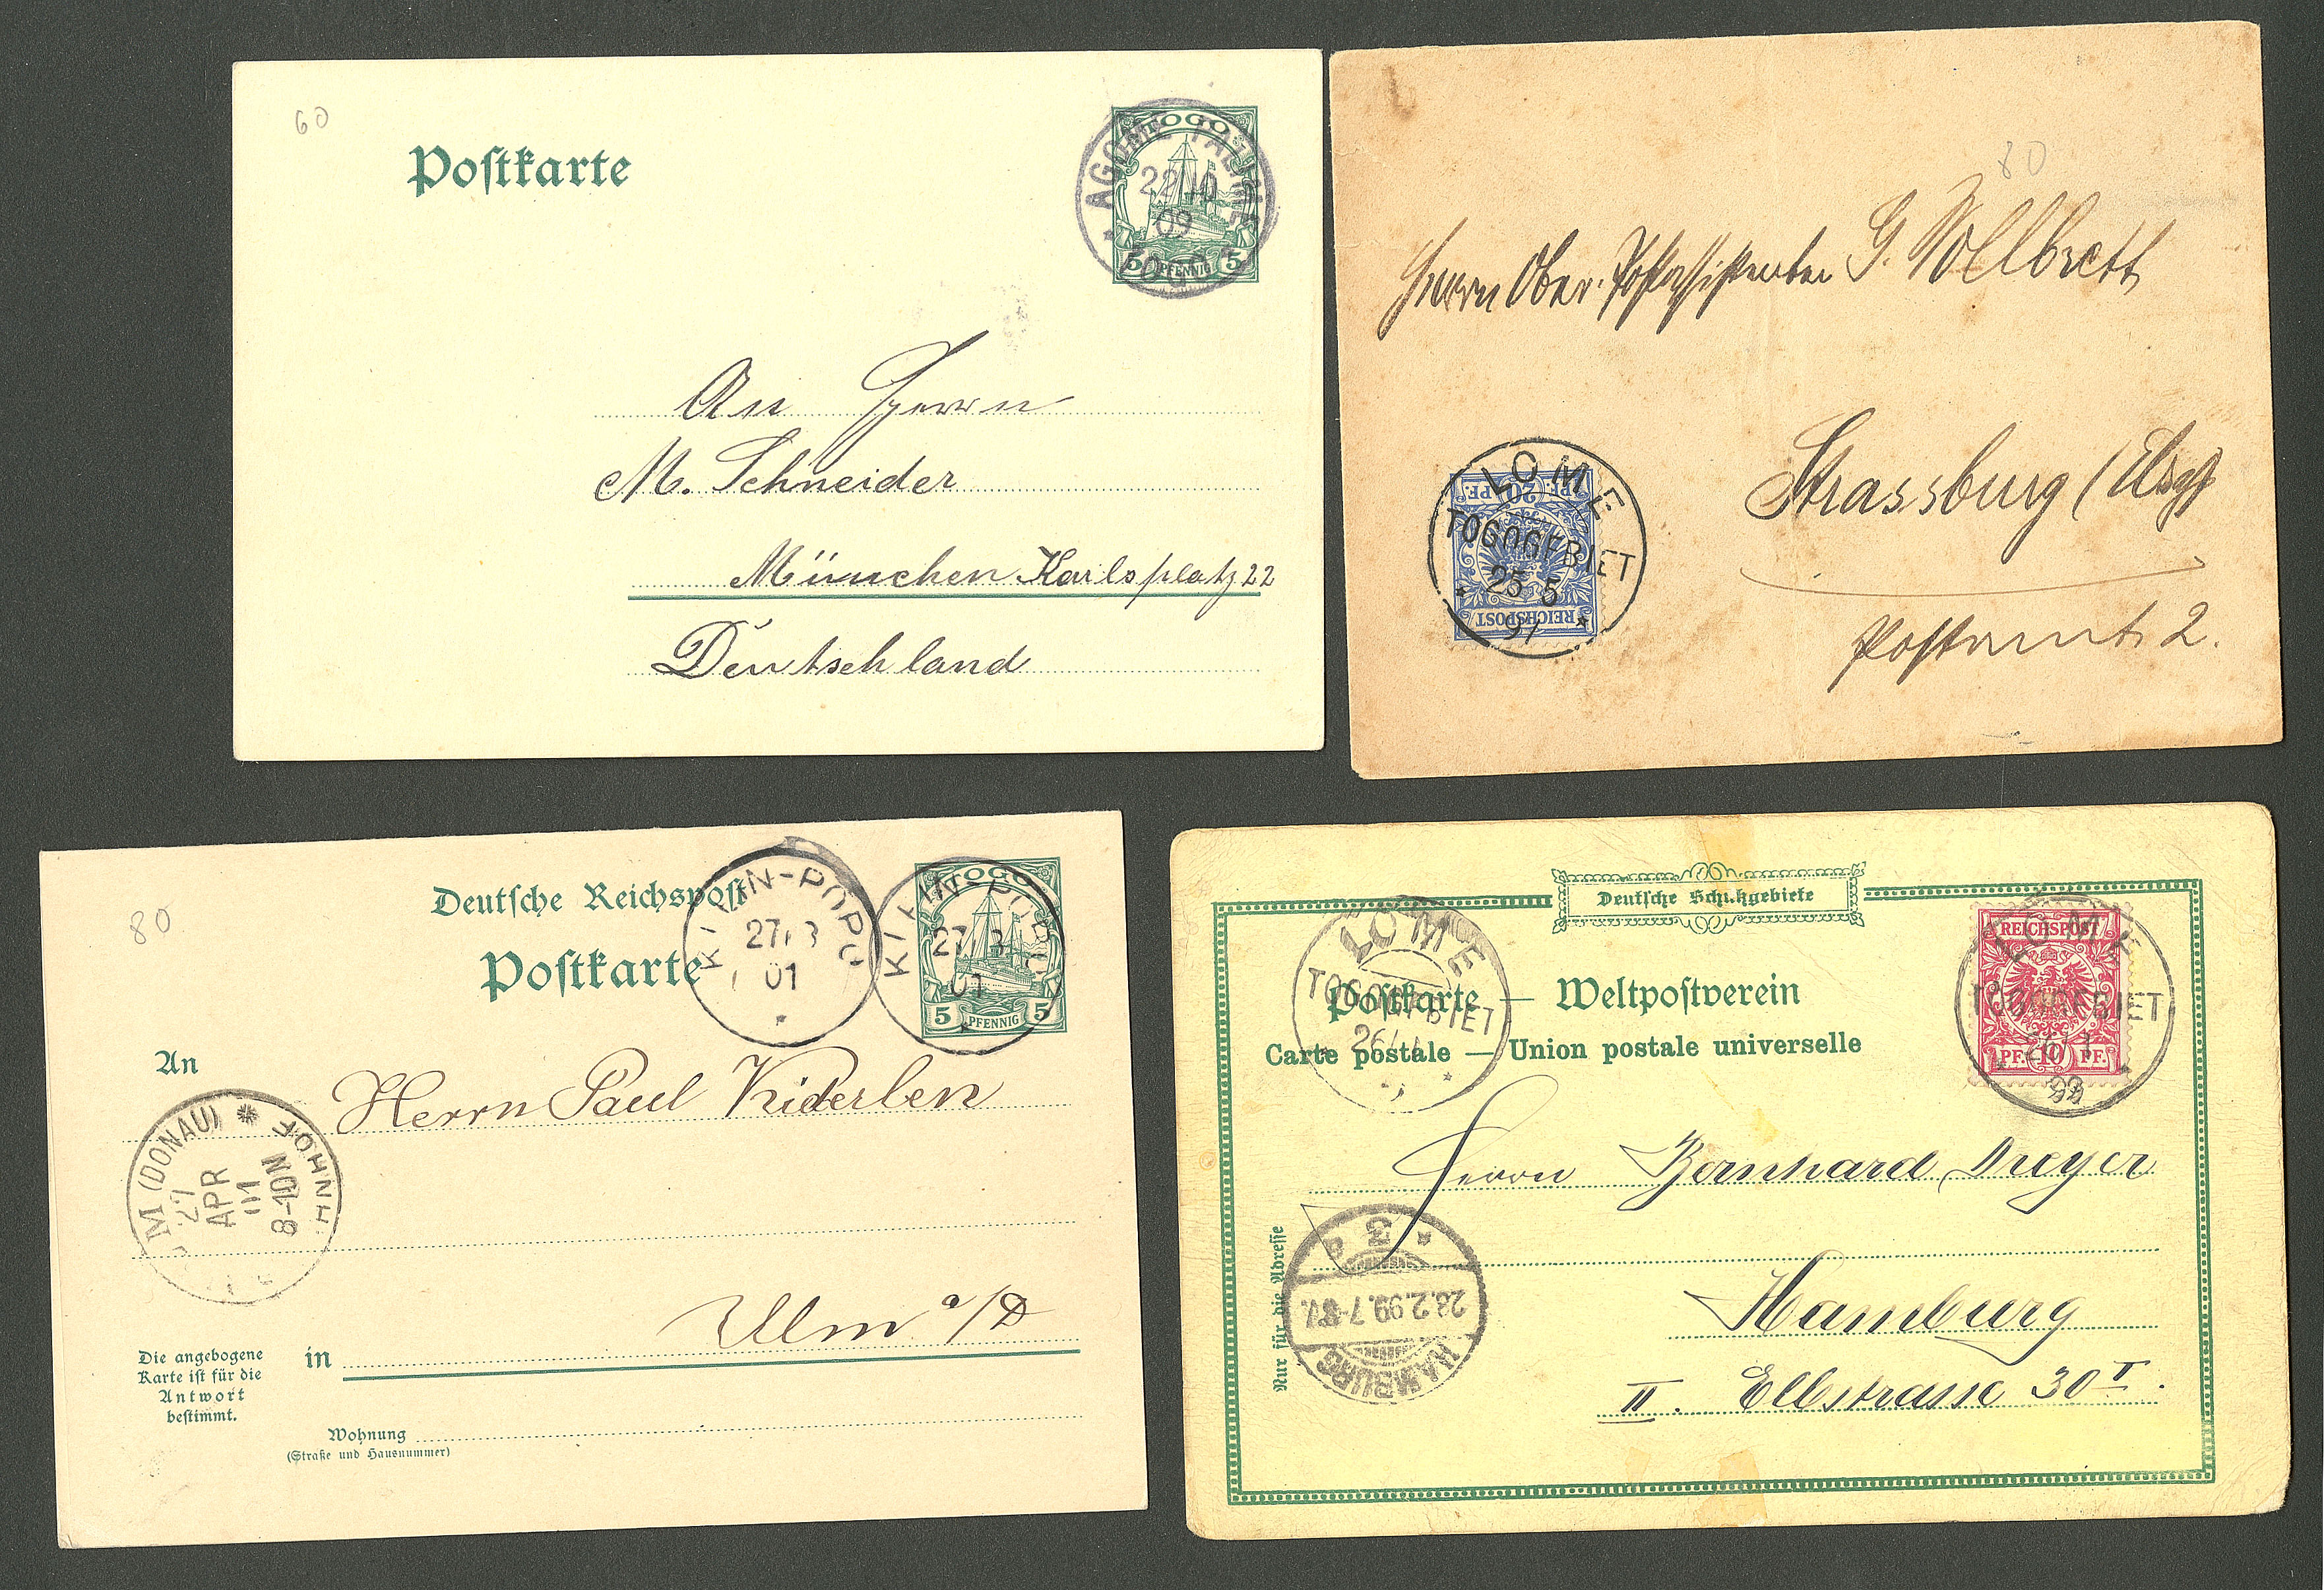 60
Postkarte
TOGO
5 PFENNIG 5
AGOME PALIME
22 10
09
* TOGO *
An Herrn
M. Schneider
München Karlsplatz 22
Deutschland
80
Herrn Ober-Postassistenten G. Vollbrett
Strassburg (Els.)
Postamt 2.
LOME
TOGOGEBIET
25 5
97
PF. 20 PF.
REICHSPOST
80
Deutsche Reichspost
Postkarte
KLEIN-POPO
27/3
01
KLEIN-POPO
27/3
01
TOGO
5 PFENNIG 5
An
Herrn Paul Kiderlen
M (DONAU) * BAHNHOF
27
APR
01
8-10N
Ulm a/D
in
Die angebogene
Karte ist für die
Antwort
bestimmt.
Wohnung
(Straße und Hausnummer)
Deutsche Schutzgebiete
LOME
TOGOGEBIET
26/1
REICHSPOST
PF. 10 PF.
LOME
TOGOGEBIET
26/1
99
Postkarte — Weltpostverein
Carte postale — Union postale universelle
Herrn Bernhard Dreyer
Hamburg
II. Elbstrasse 30 I.
Nur für die Adresse
HAMBURG
28.2.99.7-8V.
* 3